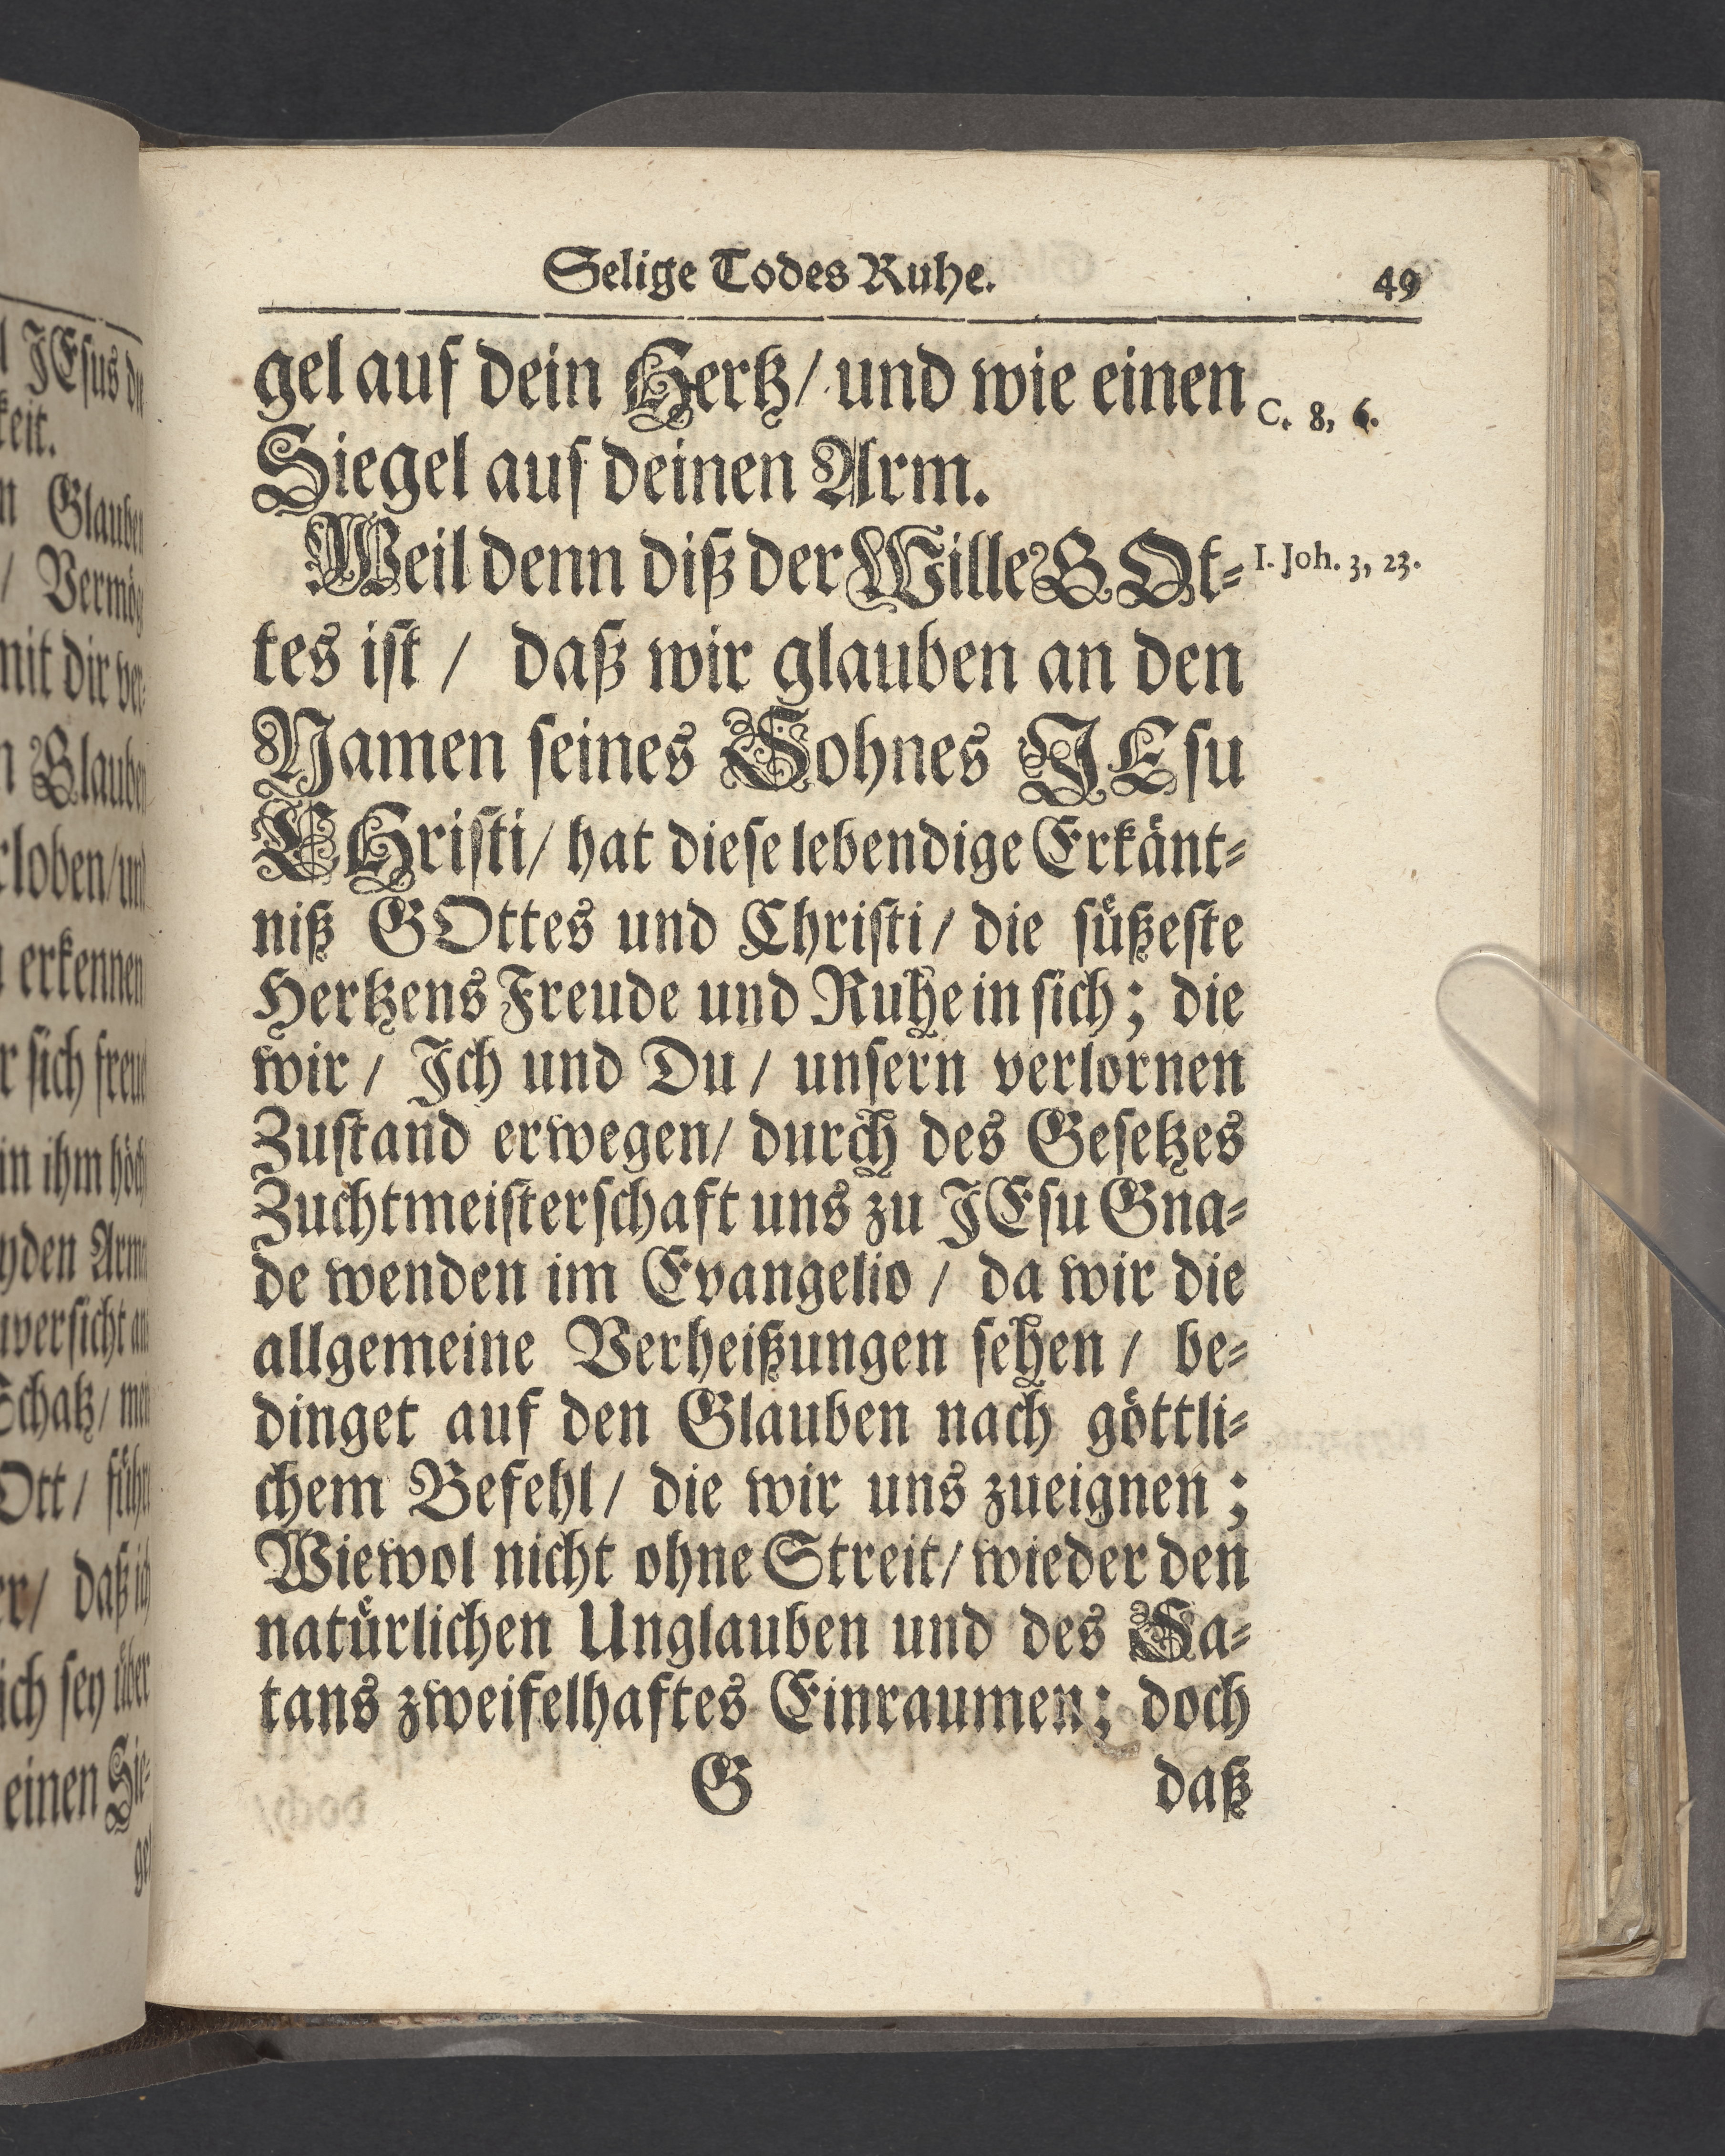 Selige Todes Ruhe. 49
gel auf dein Hertz/ und wie einen
C. 8, 6.
Siegel auf deinen Arm.
Weil denn diß der Wille GOt⸗
I. Joh. 3, 23.
tes ist / daß wir glauben an den
Namen seines Sohnes JEsu
CHristi/ hat diese lebendige Erkänt⸗
niß GOttes und Christi/ die süßeste
Hertzens Freude und Ruhe in sich; die
wir / Ich und Du / unsern verlornen
Zustand erwegen/ durch des Gesetzes
Zuchtmeisterschaft uns zu JEsu Gna⸗
de wenden im Evangelio / da wir die
allgemeine Verheißungen sehen / be⸗
dinget auf den Glauben nach göttli⸗
chem Befehl/ die wir uns zueignen;
Wiewol nicht ohne Streit/ wieder den
natürlichen Unglauben und des Sa⸗
tans zweifelhaftes Einraumen; doch
G daß
JEsus
keit.
Glauben
/ Vermög
mit dir ver⸗
Glauben
loben/ und
erkennen
sich freue
in ihm höch
Arme
Schatz/
Ott / führ
daß ich
ich sey über
einen Sie⸗
gel